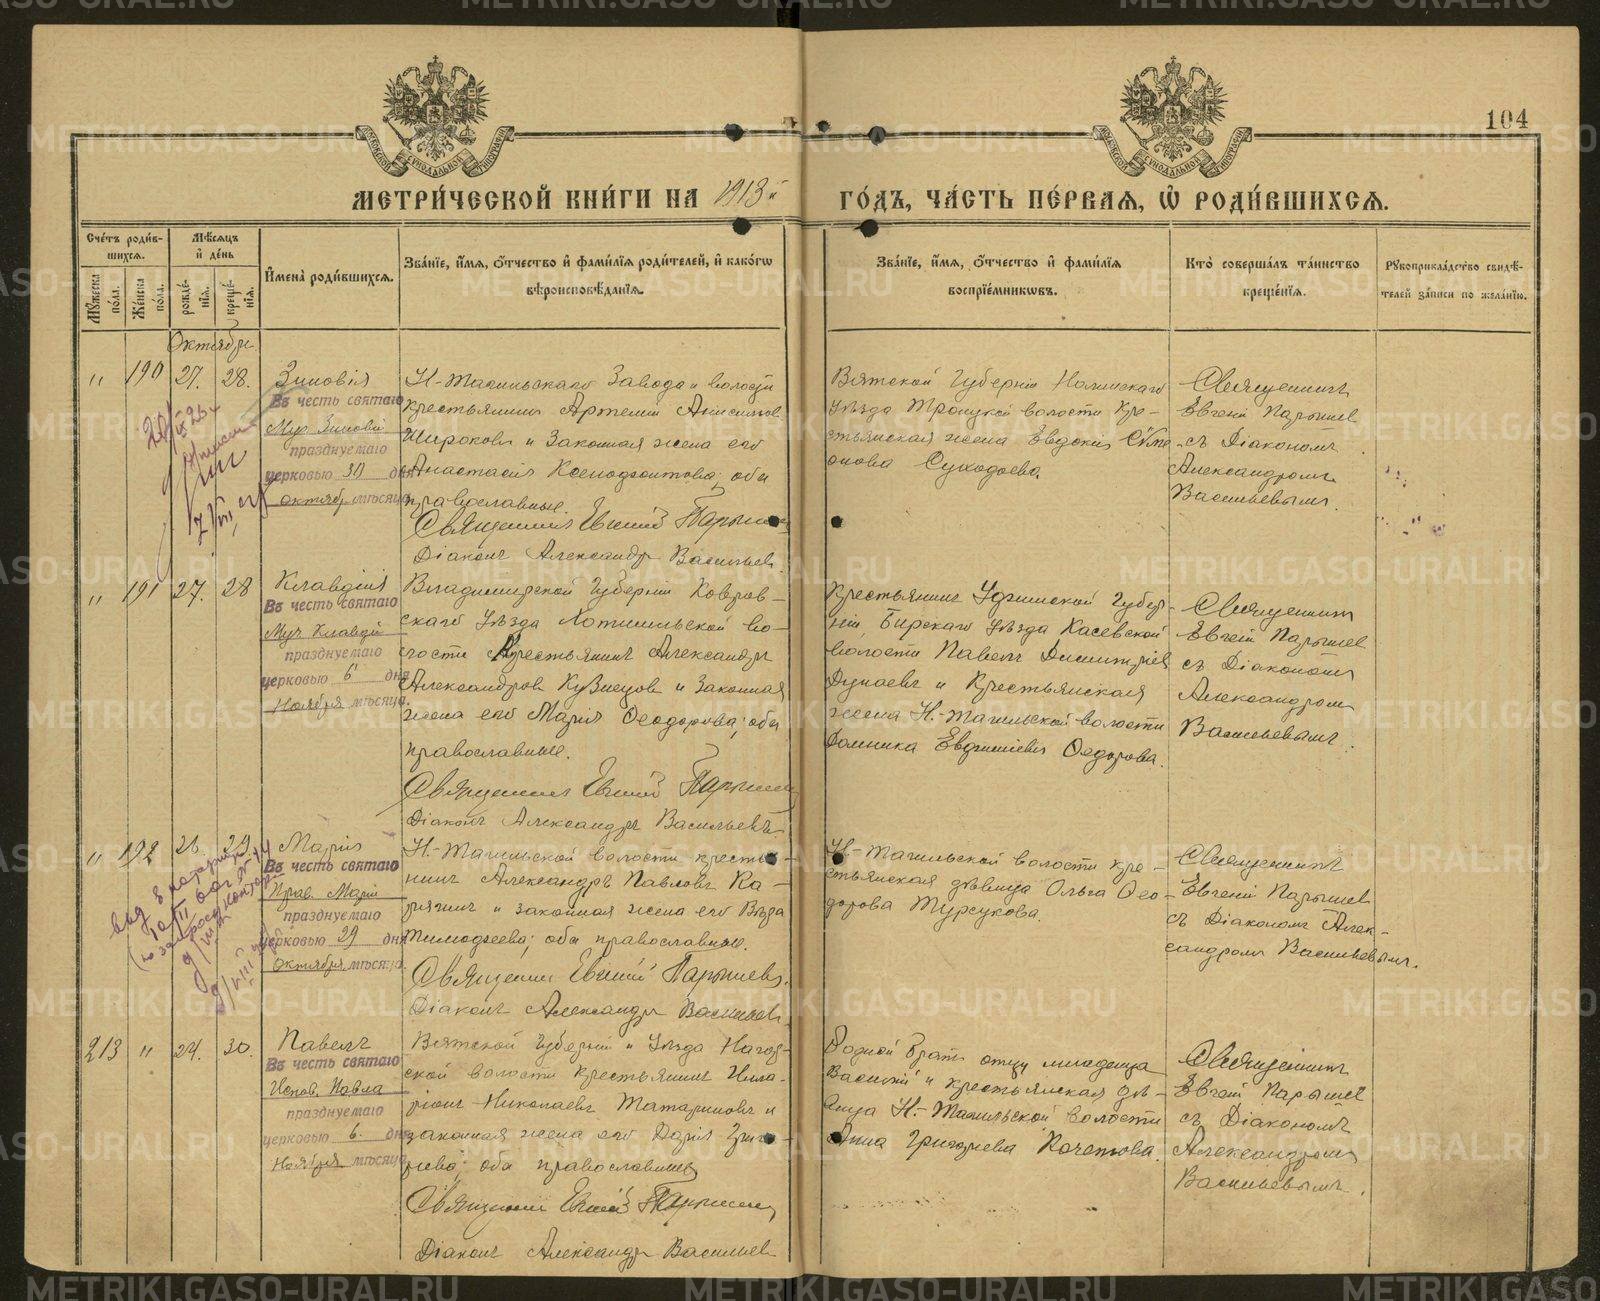 104
МЕТРИ́ЧЕСКОЙ КНИ́ГИ НА 1913й ГО́ДЪ, ЧА́СТЬ ПЕ́РВАЯ, Ѡ҆ РОДИ́ВШИХСѦ.
Сче́тъ роди́в-
шихсѧ.
Мꙋ́жеска по́ла.
Же́нска по́ла.
Мѣ́сѧцъ
и҆ де́нь
рожде́-
нїѧ.
креще́-
нїѧ.
И҆мена̀ роди́вшихсѧ.
Зва́нїе, и҆́мѧ, ѻ҆́тчество и҆ фами́лїѧ роди́телей, и҆ како́гѡ
вѣроисповѣ́данїѧ.
Зва́нїе, и҆́мѧ, ѻ҆́тчество и҆ фами́лїѧ
воспрїе́мникѡвъ.
Кто̀ соверша́лъ та́инство
креще́нїѧ.
Рꙋкоприкла́дство свидѣ́-
телей за́писи по жела́нїю.
Октября
" 190 27. 28.
Зиновія
Въ честь святаго
Муч Зиновіи
празднуемаго
церковью 30 дня
октябр мѣсяца
Н-Тагильскаго Завода и волости
крестьянинъ Артемій Анисимовъ
Широковъ и законная жена его
Анастасія Ксенофонтова, оба
православные.
Священникъ Евгеній Парышев
Діаконъ Александръ Васильевъ
Вятской Губерніи Нолинскаго
уѣзда Троицкой волости кре-
стьянская жена Евдокія Симе-
онова Суходоева.
Священникъ
Евгеній Парышев
съ Діакономъ
Александромъ
Васильевымъ.
" 191 27. 28
Клавдія
Въ честь святаго
Муч Клавдіи
празднуемаго
церковью 6 дня
Ноября мѣсяца.
Владимирской Губерніи Ковров-
скаго уѣзда во-
лости Крестьянинъ Александръ
Александровъ Кузнецовъ и законная
жена его Марія Ѳеодорова, оба
православные.
Священникъ Евгеній Парышев
Діаконъ Александръ Васильевъ
Крестьянинъ Уфимской Губер-
ніи, Бирскаго уѣзда Касевской
волости Павелъ Димитріев
Дунаевъ и Крестьянская
жена Н.-Тагильской волости
Домника Евфиміевна Ѳедорова.
Священникъ
Евгеній Парышев
съ Діакономъ
Александромъ
Васильевымъ.
" 192 28. 29
Марія
Въ честь святаго
Прав. Маріи
празднуемаго
церковью 29 дня
октября мѣсяца
Н.-Тагильской волости кресть-
янинъ Александръ Павловъ Ка-
рякинъ и законная жена его Вѣра
Тимофеева, оба православные.
Священникъ Евгеній Парышевъ.
Діаконъ Александръ Васильевъ
Н.-Тагильской волости кре-
стьянская дѣвица Ольга Ѳео-
дорова Турсукова.
Священникъ
Евгеній Парышев
съ Діакономъ Алек-
сандромъ Васильевымъ.
213 " 24. 30.
Павелъ
Въ честь святаго
Испов. Павла
празднуемаго
церковью 6. дня
Ноября мѣсяца
Вятской Губерніи и уѣзда Нагор-
ской волости крестьянинъ Ила-
ріонъ Николаевъ Татариновъ и
законная жена его Дарія Григо-
рьева, оба православные
Священникъ Евгеній Парышев
Діаконъ Александръ Васильевъ
Родной братъ отцу младенца
Василій и крестьянская дѣ-
вица Н.-Тагильской волости
Анна Григорьева Кочетова.
Священникъ
Евгеній Парышев
съ Діакономъ
Александромъ
Васильевымъ.
METRIKI.GASO-URAL.RU